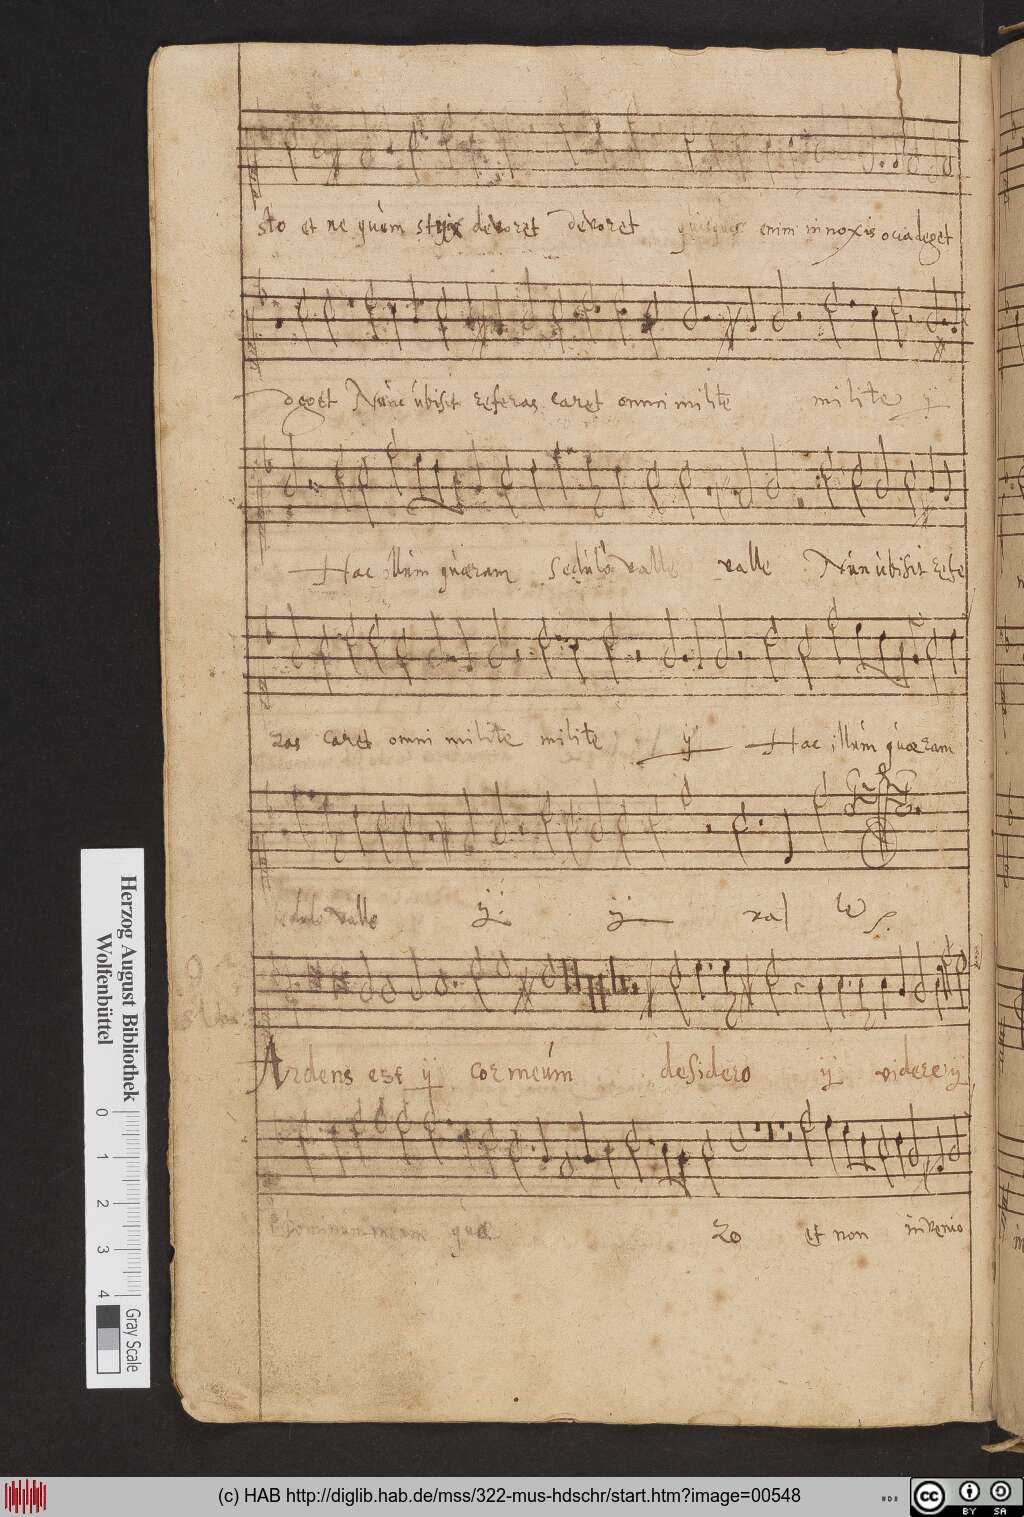 sto et ne quem styx devoret devoret quisquis enim in noxis ocia deget
deget Nunc ubi sit referas caret omni milite milite ij
Hac illum quæram sedulo valle valle Nun ubi sit refe
ras caret omni milite milite ij Hac illum quæram
sedulo valle ij ij val le
Ardens est ij cor meum desidero ij videre ij
Dominum meum quæ ro et non invenio
Herzog August Bibliothek
Wolfenbüttel
0 1 2 3 4
Gray Scale
(c) HAB http://diglib.hab.de/mss/322-mus-hdschr/start.htm?image=00548
cc BY SA